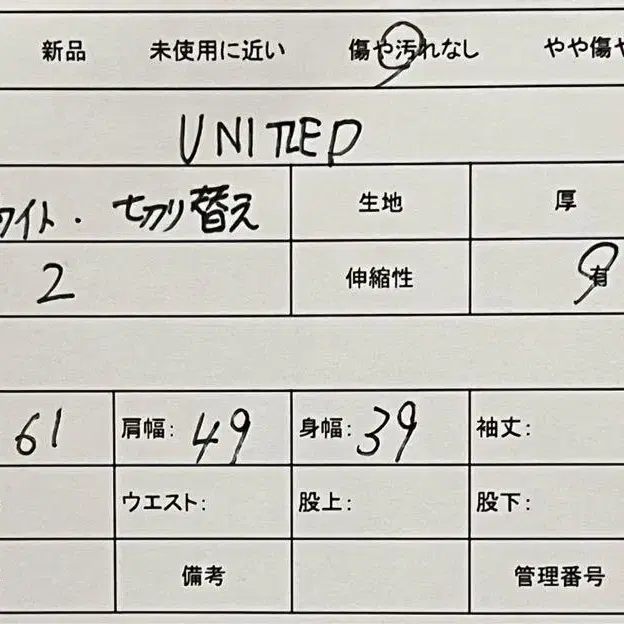 新品 未使用に近い 傷や汚れなし やや傷や
UNITED
ワイト・切り替え 生地 厚
2 伸縮性 有
61 肩幅: 49 身幅: 39 袖丈:
ウエスト: 股上: 股下:
備考 管理番号